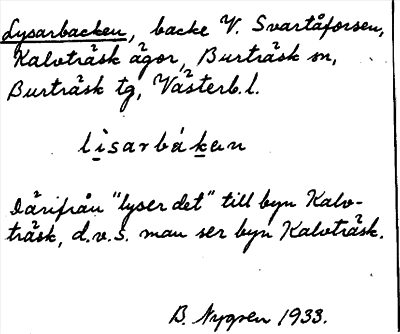 Lysarbacken, backe V. Svartåforsen,
Kalvträsk ägor, Burträsk sn,
Burträsk tg, Västerb. l.
lisarbákan
Därifrån "lyser det" till byn Kalv-
träsk, d.v.s. man ser byn Kalvträsk.
B. Nygren 1933.